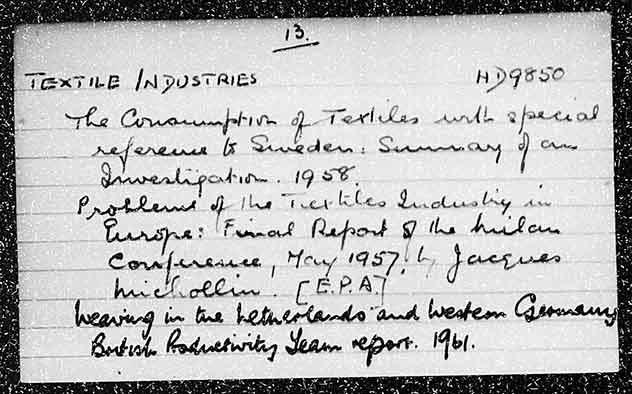 13.
TEXTILE INDUSTRIES HD9850
The Consumption of Textiles with special
reference to Sweden: Summary of an
Investigation. 1958
Problems of the Textiles Industry in
Europe: Final Report of the Milan
Conference, May 1957, by Jacques
Michollin. [E.P.A.]
Weaving in the Netherlands and Western Germany
British Productivity Team report. 1961.